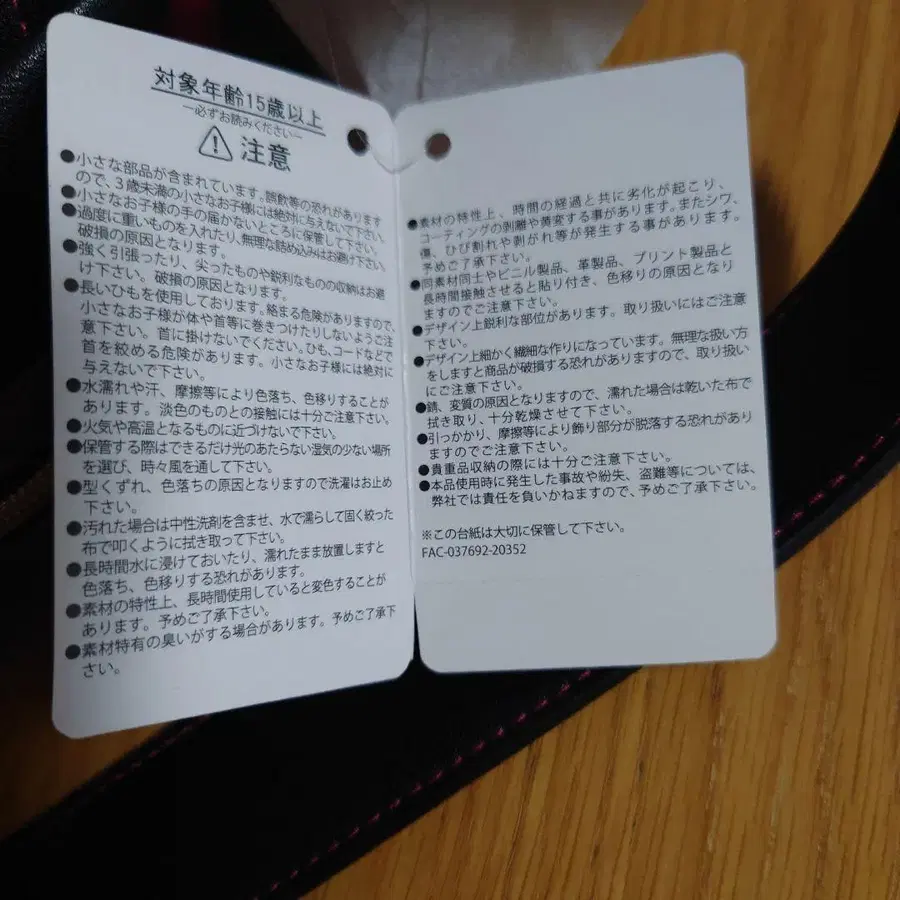 対象年齢15歳以上
―必ずお読みください―
注意
●小さな部品が含まれています。誤飲等の恐れがあります
ので、3歳未満の小さなお子様には絶対に与えないで下さい。
●小さなお子様の手の届かないところに保管して下さい。
●過度に重いものを入れたり、無理な詰め込みはお避け下さい。
破損の原因となります。
●強く引張ったり、尖ったものや鋭利なものの収納はお避
け下さい。破損の原因となります。
●長いひもを使用しております。絡まる危険がありますので、
小さなお子様が体や首等に巻きつけたりしないようご注
意下さい。首に掛けないでください。ひも、コードなどで
首を絞める危険があります。小さなお子様には絶対に
与えないで下さい。
●水濡れや汗、摩擦等により色落ち、色移りすることが
あります。淡色のものとの接触には十分ご注意下さい。
●火気や高温となるものに近づけないで下さい。
●保管する際はできるだけ光のあたらない湿気の少ない場所
を選び、時々風を通して下さい。
●型くずれ、色落ちの原因となりますので洗濯はお止め
下さい。
●汚れた場合は中性洗剤を含ませ、水で濡らして固く絞った
布で叩くように拭き取って下さい。
●長時間水に浸けておいたり、濡れたまま放置しますと
色落ち、色移りする恐れがあります。
●素材の特性上、長時間使用していると変色することが
あります。予めご了承下さい。
●素材特有の臭いがする場合があります。予めご了承下
さい。
●素材の特性上、時間の経過と共に劣化が起こり、
コーティングの剥離や黄変する事があります。またシワ、
傷、ひび割れや剥がれ等が発生する事があります。
予めご了承下さい。
●同素材同士やビニル製品、革製品、プリント製品と
長時間接触させると貼り付き、色移りの原因となり
ますのでご注意下さい。
●デザイン上鋭利な部位があります。取り扱いにはご注意
下さい。
●デザイン上細かく繊細な作りになっています。無理な扱い方
をしますと商品が破損する恐れがありますので、取り扱い
にご注意下さい。
●錆、変質の原因となりますので、濡れた場合は乾いた布で
拭き取り、十分乾燥させて下さい。
●引っかかり、摩擦等により飾り部分が脱落する恐れがあり
ますのでご注意下さい。
●貴重品収納の際には十分ご注意下さい。
●本品使用時に発生した事故や紛失、盗難等については、
弊社では責任を負いかねますので、予めご了承下さい。
※この台紙は大切に保管して下さい。
FAC-037692-20352